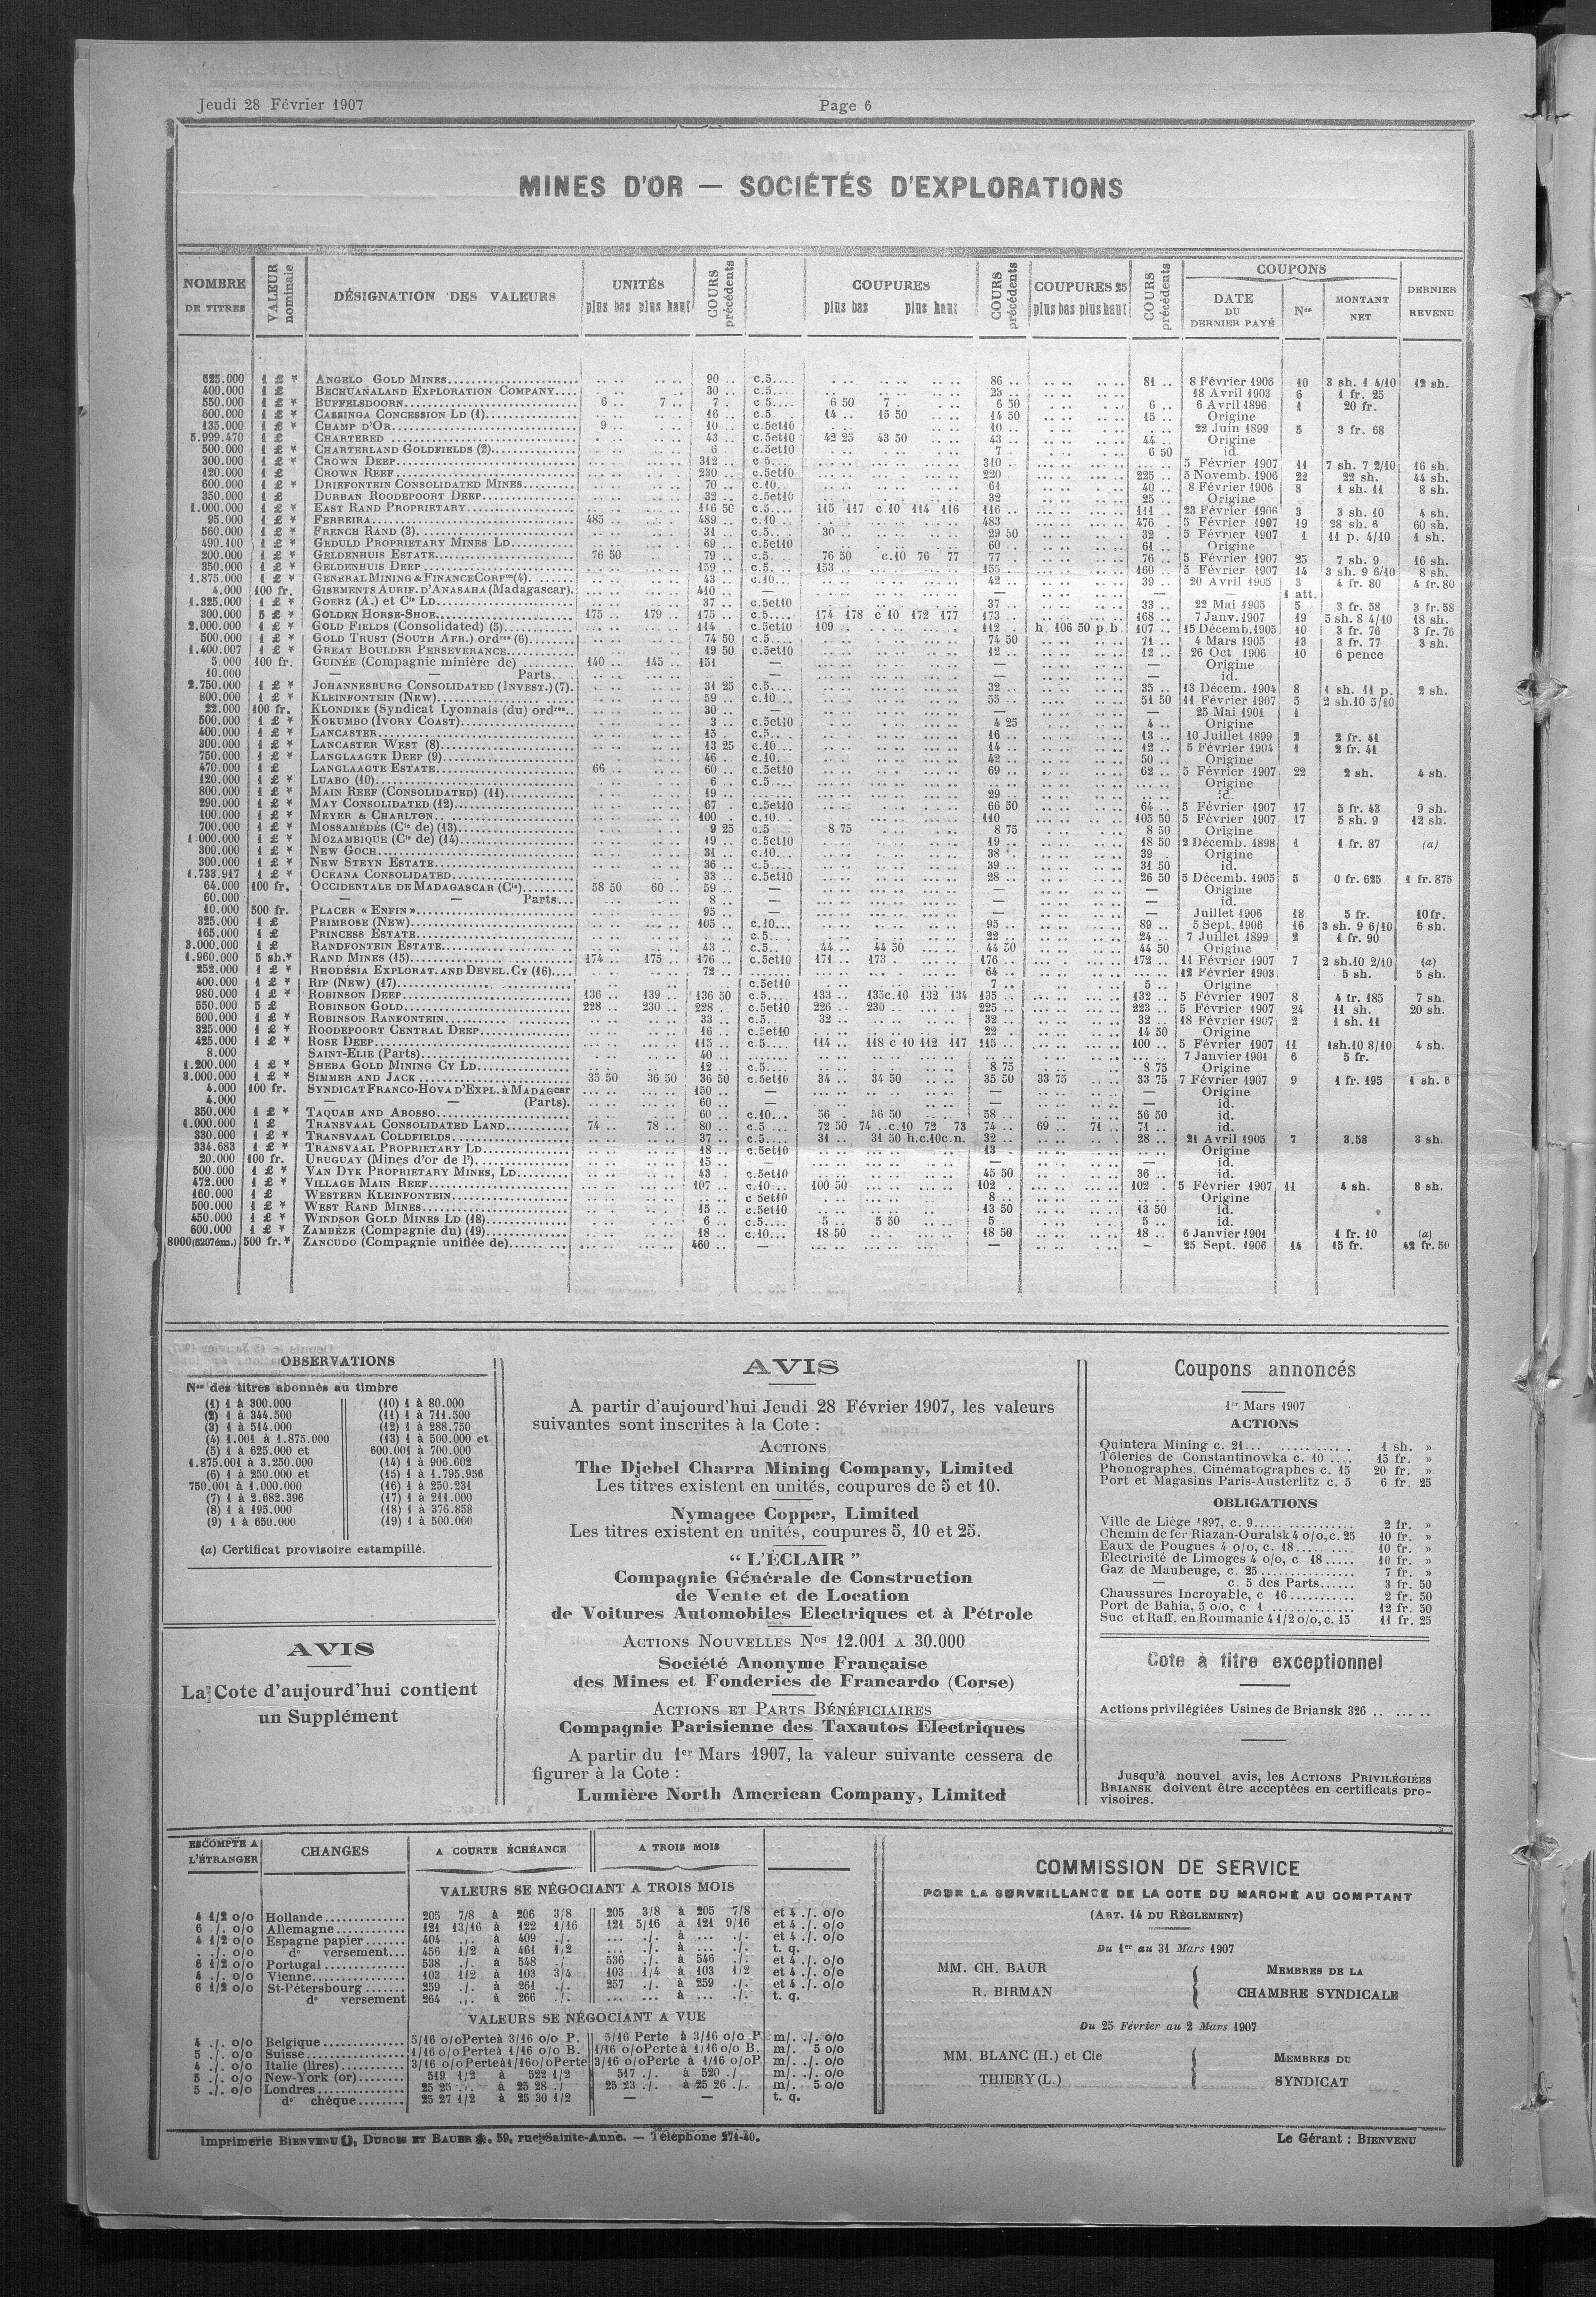 Jeudi 28 Février 1907
Page 6
MINES D'OR — SOCIÉTÉS D'EXPLORATIONS
NOMBRE DE TITRES
VALEUR nominale
DÉSIGNATION DES VALEURS
UNITÉS plus bas plus haut
COURS précédents
COUPURES plus bas plus haut
COURS précédents
COUPURES 25 plus bas plus haut
COURS précédents
COUPONS
DATE DU DERNIER PAYÉ
Nos
MONTANT NET
DERNIER REVENU
625.000 1 £ * ANGELO GOLD MINES 90 .. c.5 86 .. 81 .. 8 Février 1906 10 3 sh. 1 4/10 12 sh.
400.000 1 £ BECHUANALAND EXPLORATION COMPANY 30 .. c.5 18 Avril 1903 6 1 fr. 25
550.000 1 £ * BUFFELSDOORN 6 .. 7 .. 7 . c.5 6 50 7 . 6 50 6 .. 6 Avril 1896 1 20 fr.
600.000 1 £ * CASSINGA CONCESSION LD (1) 16 .. c.5 14 .. 15 50 14 50 15 .. Origine
135.000 1 £ * CHAMP D'OR 9 .. 10 .. c.5et10 10 .. 22 Juin 1899 5 3 fr. 68
5.999.470 1 £ CHARTERED 43 .. c.5et10 42 25 43 50 43 .. 44 .. Origine
500.000 1 £ * CHARTERLAND GOLDFIELDS (2) 6 c.5et10 7 . 6 50 id
300.000 1 £ * CROWN DEEP 312 .. c 5 310 . 5 Février 1907 11 7 sh. 7 2/10 16 sh.
120.000 1 £ CROWN REEF 230 .. c.5et10 220 225 .. 5 Novemb. 1906 22 22 sh. 44 sh.
600.000 1 £ * DRIEFONTEIN CONSOLIDATED MINES 70 .. c.10 61 40 .. 8 Février 1906 8 1 sh. 11 8 sh.
350.000 1 £ DURBAN ROODEPOORT DEEP 32 .. c.5et10 32 25 .. Origine
1.000.000 1 £ * EAST RAND PROPRIETARY 116 50 c.5 115 117 c.10 114 116 116 .. 111 .. 23 Février 1906 3 3 sh. 10 4 sh.
95.000 1 £ * FERREIRA 485 .. 489 .. c.10 483 476 . 5 Février 1907 19 28 sh. 6 60 sh.
560.000 1 £ * FRENCH RAND (3) 31 .. c.5 30 .. 29 50 32 . 5 Février 1907 1 11 p. 4/10 1 sh.
490.100 1 £ * GEDULD PROPRIETARY MINES LD 69 .. c.5et10 60 .. 61 .. Origine
200.000 1 £ * GELDENHUIS ESTATE 76 50 79 .. c.5 76 50 c.10 76 77 77 . 76 .. 5 Février 1907 25 7 sh. 9 16 sh.
350.000 1 £ * GELDENHUIS DEEP 159 .. c.5 153 .. 155 160 .. 5 Février 1907 14 3 sh. 9 6/10 8 sh.
1.875.000 1 £ * GENERAL MINING & FINANCE CORPon (4) 43 .. c.10 42 .. 39 .. 20 Avril 1905 3 4 fr. 80 4 fr. 80
4.000 100 fr. GISEMENTS AURIF. D'ANASAHA (Madagascar). 410 .. — — — — 1 att.
1.325.000 1 £ * GOERZ (A.) et Cie LD 37 .. c.5et10 37 .. 33 .. 22 Mai 1905 5 3 fr. 58 3 fr. 58
300.000 5 £ * GOLDEN HORSE-SHOE 175 .. 179 .. 175 .. c.5 174 178 c 10 172 177 173 .. 168 .. 7 Janv. 1907 19 5 sh. 8 4/10 18 sh.
2.000.000 1 £ * GOLD FIELDS (Consolidated) (5) 114 .. c.5et10 109 .. 112 .. h. 106 50 p.b. 107 .. 15 Décemb. 1905 10 3 fr. 76 3 fr. 76
500.000 1 £ * GOLD TRUST (SOUTH AFR.) ordres (6) 74 50 c.5 74 50 71 .. 4 Mars 1905 13 3 fr. 77 3 sh.
1.400.007 1 £ * GREAT BOULDER PERSEVERANCE 19 50 c.5et10 12 .. 12 .. 26 Oct 1906 10 6 pence
5.000 100 fr. GUINÉE (Compagnie minière de) 140 .. 145 .. 151 — — — Origine
10.000 — — Parts — — — id.
2.750.000 1 £ * JOHANNESBURG CONSOLIDATED (INVEST.) (7). 31 25 c.5 32 .. 35 .. 13 Décem. 1904 8 1 sh. 11 p. 2 sh.
800.000 1 £ * KLEINFONTEIN (New) 59 .. c.10 55 .. 51 50 11 Février 1907 5 2 sh.10 5/10
22.000 100 fr. KLONDIKE (Syndicat Lyonnais (du) ordres 30 .. — — — 25 Mai 1901 1
500.000 1 £ * KOKUMBO (IVORY COAST) 3 .. c.5et10 4 25 4 .. Origine
400.000 1 £ * LANCASTER 15 .. c.5 16 .. 13 .. 10 Juillet 1899 2 2 fr. 41
300.000 1 £ * LANCASTER WEST (8) 13 25 c.10 14 .. 12 .. 5 Février 1904 1 2 fr. 41
750.000 1 £ * LANGLAAGTE DEEP (9) 46 . c.10 42 .. 50 .. Origine
470.000 1 £ LANGLAAGTE ESTATE 66 .. 60 .. c.5et10 69 .. 62 .. 5 Février 1907 22 2 sh. 4 sh.
120.000 1 £ * LUABO (10) 6 .. c.5 Origine
800.000 1 £ * MAIN REEF (CONSOLIDATED) (11) 19 .. 29 id.
290.000 1 £ * MAY CONSOLIDATED (12) 67 . c.5et10 66 50 64 .. 5 Février 1907 17 5 fr. 43 9 sh.
100.000 1 £ * MEYER & CHARLTON 100 . c.10 110 105 50 5 Février 1907 17 5 sh. 9 12 sh.
700.000 1 £ * MOSSAMÉDÈS (Cie de) (13) 9 25 c.5 8 75 8 75 8 50 Origine
1.000.000 1 £ * MOZAMBIQUE (Cie de) (14) 19 .. c.5et10 19 .. 18 50 2 Décemb. 1898 1 1 fr. 87 (a)
300.000 1 £ * NEW GOCH 31 .. c.10 38 . 39 . Origine
300.000 1 £ * NEW STEYN ESTATE 36 .. c.5 39 .. 31 50 id.
1.733.917 1 £ * OCEANA CONSOLIDATED 33 .. c.5et10 28 .. 26 50 5 Décemb. 1905 5 0 fr. 625 1 fr. 875
64.000 100 fr. OCCIDENTALE DE MADAGASCAR (Cie) 58 50 60 .. 59 .. — — — Origine
60.000 — — Parts 8 .. — — — id.
10.000 500 fr. PLACER « ENFIN » 95 .. — — — Juillet 1906 18 5 fr. 10 fr.
325.000 1 £ PRIMROSE (New) 105 .. c.10 95 .. 89 .. 5 Sept. 1906 16 3 sh. 9 6/10 6 sh.
165.000 1 £ PRINCESS ESTATE c.5 22 .. 24 .. 7 Juillet 1899 2 1 fr. 90
3.000.000 1 £ RANDFONTEIN ESTATE 43 .. c.5 44 .. 44 50 44 50 44 50 Origine
1.960.000 5 sh.* RAND MINES (15) 174 .. 175 .. 176 .. c.5et10 171 .. 173 . 176 .. 172 .. 11 Février 1907 7 2 sh.10 2/10 (a)
252.000 1 £ * RHODÉSIA EXPLORAT. AND DEVEL. CY (16) 72 .. 64 .. 12 Février 1903 5 sh. 5 sh.
400.000 1 £ * RIP (NEW) (17) c.5et10 7 .. 5 .. Origine
980.000 1 £ * ROBINSON DEEP 136 .. 139 .. 136 50 c.5 133 .. 135 c.10 132 134 135 .. 132 .. 5 Février 1907 8 4 fr. 185 7 sh.
550.000 5 £ ROBINSON GOLD 228 .. 230 .. 228 . c.5et10 226 .. 230 225 .. 223 .. 5 Février 1907 24 11 sh. 20 sh.
600.000 1 £ * ROBINSON RANFONTEIN 33 .. c.5 32 .. 32 .. 32 .. 18 Février 1907 2 1 sh. 11
325.000 1 £ * ROODEPOORT CENTRAL DEEP 16 .. c.5et10 22 .. 14 50 Origine
425.000 1 £ * ROSE DEEP 115 .. c.5 114 .. 118 c 10 112 117 115 .. 100 .. 5 Février 1907 11 1sh.10 8/10 4 sh.
8.000 SAINT-ELIE (Parts) 40 .. 7 Janvier 1901 6 5 fr.
1.200.000 1 £ * SHEBA GOLD MINING CY LD 12 .. c.5 8 75 8 75 Origine
3.000.000 1 £ * SIMMER AND JACK 35 50 36 50 36 50 c.5et10 34 .. 34 50 35 50 33 75 33 75 7 Février 1907 9 1 fr. 195 1 sh. 6
4.000 100 fr. SYNDICAT FRANCO-HOVA D'EXPL. à MADAGcar 150 .. — — — Origine
4.000 — — (Parts). 60 .. — — — id.
350.000 1 £ * TAQUAH AND ABOSSO 60 .. c.10 56 . 56 50 58 .. 56 50 id.
1.000.000 1 £ TRANSVAAL CONSOLIDATED LAND 74 .. 78 .. 80 .. c.5 72 50 74 ..c.10 72 73 74 .. 69 .. 71 .. 71 .. id.
330.000 1 £ * TRANSVAAL COLDFIELDS 37 .. c.5 31 .. 31 50 h.c.10c.n. 32 .. 28 .. 21 Avril 1905 7 3.58 3 sh.
334.683 1 £ * TRANSVAAL PROPRIETARY LD 18 .. c.5et10 13 . Origine
20.000 100 fr. URUGUAY (Mines d'or de l') 15 .. — — — id.
500.000 1 £ * VAN DYK PROPRIETARY MINES, LD 43 . c.5et10 45 50 36 .. id.
472.000 1 £ * VILLAGE MAIN REEF 107 .. c.10 100 50 102 . 102 .. 5 Février 1907 11 4 sh. 8 sh.
160.000 1 £ WESTERN KLEINFONTEIN c 5et10 8 .. Origine
500.000 1 £ * WEST RAND MINES 15 .. c.5et10 13 50 13 50 id.
450.000 1 £ * WINDSOR GOLD MINES LD (18) 6 .. c.5 5 .. 5 50 5 5 .. id.
600.000 1 £ * ZAMBÈZE (Compagnie du) (19) 18 .. c.10 18 50 18 50 18 .. 6 Janvier 1901 1 fr. 10 (a)
8000(6207 ém.) 500 fr.* ZANCUDO (Compagnie unifiée de) 460 .. — — — 25 Sept. 1906 14 15 fr. 42 fr. 50
OBSERVATIONS
Nos des titres abonnés au timbre
(1) 1 à 300.000
(2) 1 à 344.500
(3) 1 à 514.000
(4) 1.001 à 1.875.000
(5) 1 à 625.000 et
1.875.001 à 3.250.000
(6) 1 à 250.000 et
750.001 à 1.000.000
(7) 1 à 2.682.396
(8) 1 à 195.000
(9) 1 à 650.000
(10) 1 à 80.000
(11) 1 à 711.500
(12) 1 à 288.750
(13) 1 à 500.000 et
600.001 à 700.000
(14) 1 à 906.602
(15) 1 à 1.795.956
(16) 1 à 250.231
(17) 1 à 211.000
(18) 1 à 376.858
(19) 1 à 500.000
(a) Certificat provisoire estampillé.
AVIS
La Cote d'aujourd'hui contient
un Supplément
AVIS
A partir d'aujourd'hui Jeudi 28 Février 1907, les valeurs
suivantes sont inscrites à la Cote :
ACTIONS
The Djebel Charra Mining Company, Limited
Les titres existent en unités, coupures de 5 et 10.
Nymagee Copper, Limited
Les titres existent en unités, coupures 5, 10 et 25.
“ L'ÉCLAIR ”
Compagnie Générale de Construction
de Vente et de Location
de Voitures Automobiles Electriques et à Pétrole
ACTIONS NOUVELLES Nos 12.001 A 30.000
Société Anonyme Française
des Mines et Fonderies de Francardo (Corse)
ACTIONS ET PARTS BÉNÉFICIAIRES
Compagnie Parisienne des Taxautos Electriques
A partir du 1er Mars 1907, la valeur suivante cessera de
figurer à la Cote :
Lumière North American Company, Limited
Coupons annoncés
1er Mars 1907
ACTIONS
Quintera Mining c. 21 1 sh. »
Tôleries de Constantinowka c. 10 15 fr. »
Phonographes, Cinématographes c. 15 20 fr. »
Port et Magasins Paris-Austerlitz c. 5 6 fr. 25
OBLIGATIONS
Ville de Liège 1897, c. 9 2 fr. »
Chemin de fer Riazan-Ouralsk 4 o/o, c. 25 10 fr. »
Eaux de Pougues 4 o/o, c. 18 10 fr. »
Electricité de Limoges 4 o/o, c 18 10 fr. »
Gaz de Maubeuge, c. 25 7 fr. »
— c. 5 des Parts 3 fr. 50
Chaussures Incroyable, c 16 2 fr. 50
Port de Bahia, 5 o/o, c 1 12 fr. 50
Suc et Raff. en Roumanie 4 1/2 o/o, c. 15 11 fr. 25
Cote à titre exceptionnel
Actions privilégiées Usines de Briansk 326 ..
Jusqu'à nouvel avis, les ACTIONS PRIVILÉGIÉES
BRIANSK doivent être acceptées en certificats pro-
visoires.
ESCOMPTE A L'ÉTRANGER
CHANGES
A COURTE ÉCHÉANCE
A TROIS MOIS
VALEURS SE NÉGOCIANT A TROIS MOIS
4 1/2 o/o Hollande 205 7/8 à 206 3/8 205 3/8 à 205 7/8 et 4 ./. o/o
6 ./. o/o Allemagne 121 13/16 à 122 1/16 121 5/16 à 121 9/16 et 4 ./. o/o
4 1/2 o/o Espagne papier 404 ./. à 409 ./. ... ./. à ... ./. et 4 ./. o/o
. ./. o/o do versement 456 1/2 à 461 1/2 ... ./. à ... ./. t. q.
6 1/2 o/o Portugal 538 ./. à 548 ./. 536 ./. à 546 ./. et 4 ./. o/o
4 ./. o/o Vienne 103 1/2 à 103 3/4 103 1/4 à 103 1/2 et 4 ./. o/o
6 1/2 o/o St-Pétersbourg 259 ./. à 261 ./. 257 ./. à 259 ./. et 4 ./. o/o
do versement 264 ./. à 266 ./. ... ... à ... ./. t. q.
VALEURS SE NÉGOCIANT A VUE
4 ./. o/o Belgique 5/16 o/o Perte à 3/16 o/o P. 5/16 Perte à 3/16 o/o P m/. ./. o/o
5 ./. o/o Suisse 1/16 o/o Perte à 1/16 o/o B. 1/16 o/o Perte à 1/16 o/o B. m/. 5 o/o
4 ./. o/o Italie (lires) 3/16 o/o Perte à 1/16 o/o Perte 3/16 o/o Perte à 1/16 o/o P m/. ./. o/o
5 ./. o/o New-York (or) 519 1/2 à 522 1/2 517 ./. à 520 ./ m/. ./. o/o
5 ./. o/o Londres 25 25 ./. à 25 28 ./ 25 23 ./. à 25 26 ./. m/. 5 o/o
do chèque 25 27 1/2 à 25 30 1/2 — — t. q.
COMMISSION DE SERVICE
POUR LA SURVEILLANCE DE LA COTE DU MARCHÉ AU COMPTANT
(ART. 14 DU RÈGLEMENT)
Du 1er au 31 Mars 1907
MM. CH. BAUR
R. BIRMAN
MEMBRES DE LA
CHAMBRE SYNDICALE
Du 25 Février au 2 Mars 1907
MM. BLANC (H.) et Cie
THIERY (L.)
MEMBRES DU
SYNDICAT
Imprimerie BIENVENU, DUBOIS ET BAUER, 59, rue Sainte-Anne. — Téléphone 271-40.
Le Gérant : BIENVENU